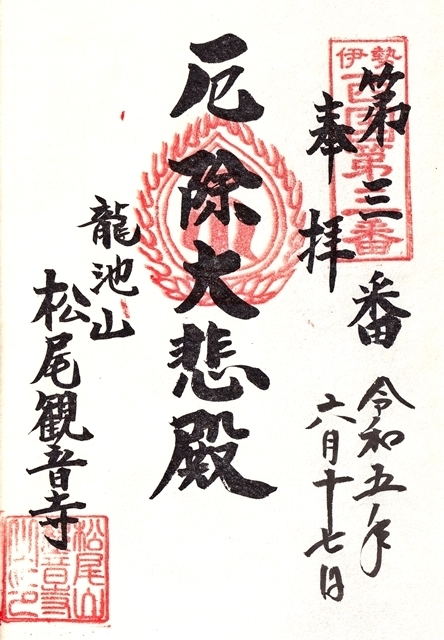 伊勢
西国第三番
第三番
奉拝
令和五年
六月十七日
厄除大悲殿
龍池山
松尾観音寺